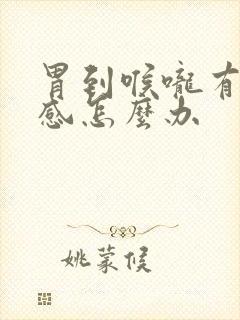 胃到喉嚨有
感怎麼办
姚蒙候